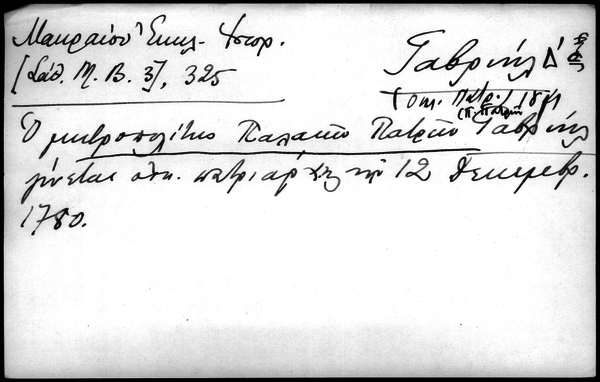 Μακραίου Ἐκκλ. Ἱστορ.
[Σάθ. Μ. Β. 3], 325
Γαβριήλ Δ΄
(Οικ. Πατρ.)
(Π. Πατρῶν)
Ὁ μητροπολίτης Παλαιῶν Πατρῶν Γαβριήλ
γίνεται οἰκ. πατριάρχης τῇ 12 Δεκεμβρ.
1780.